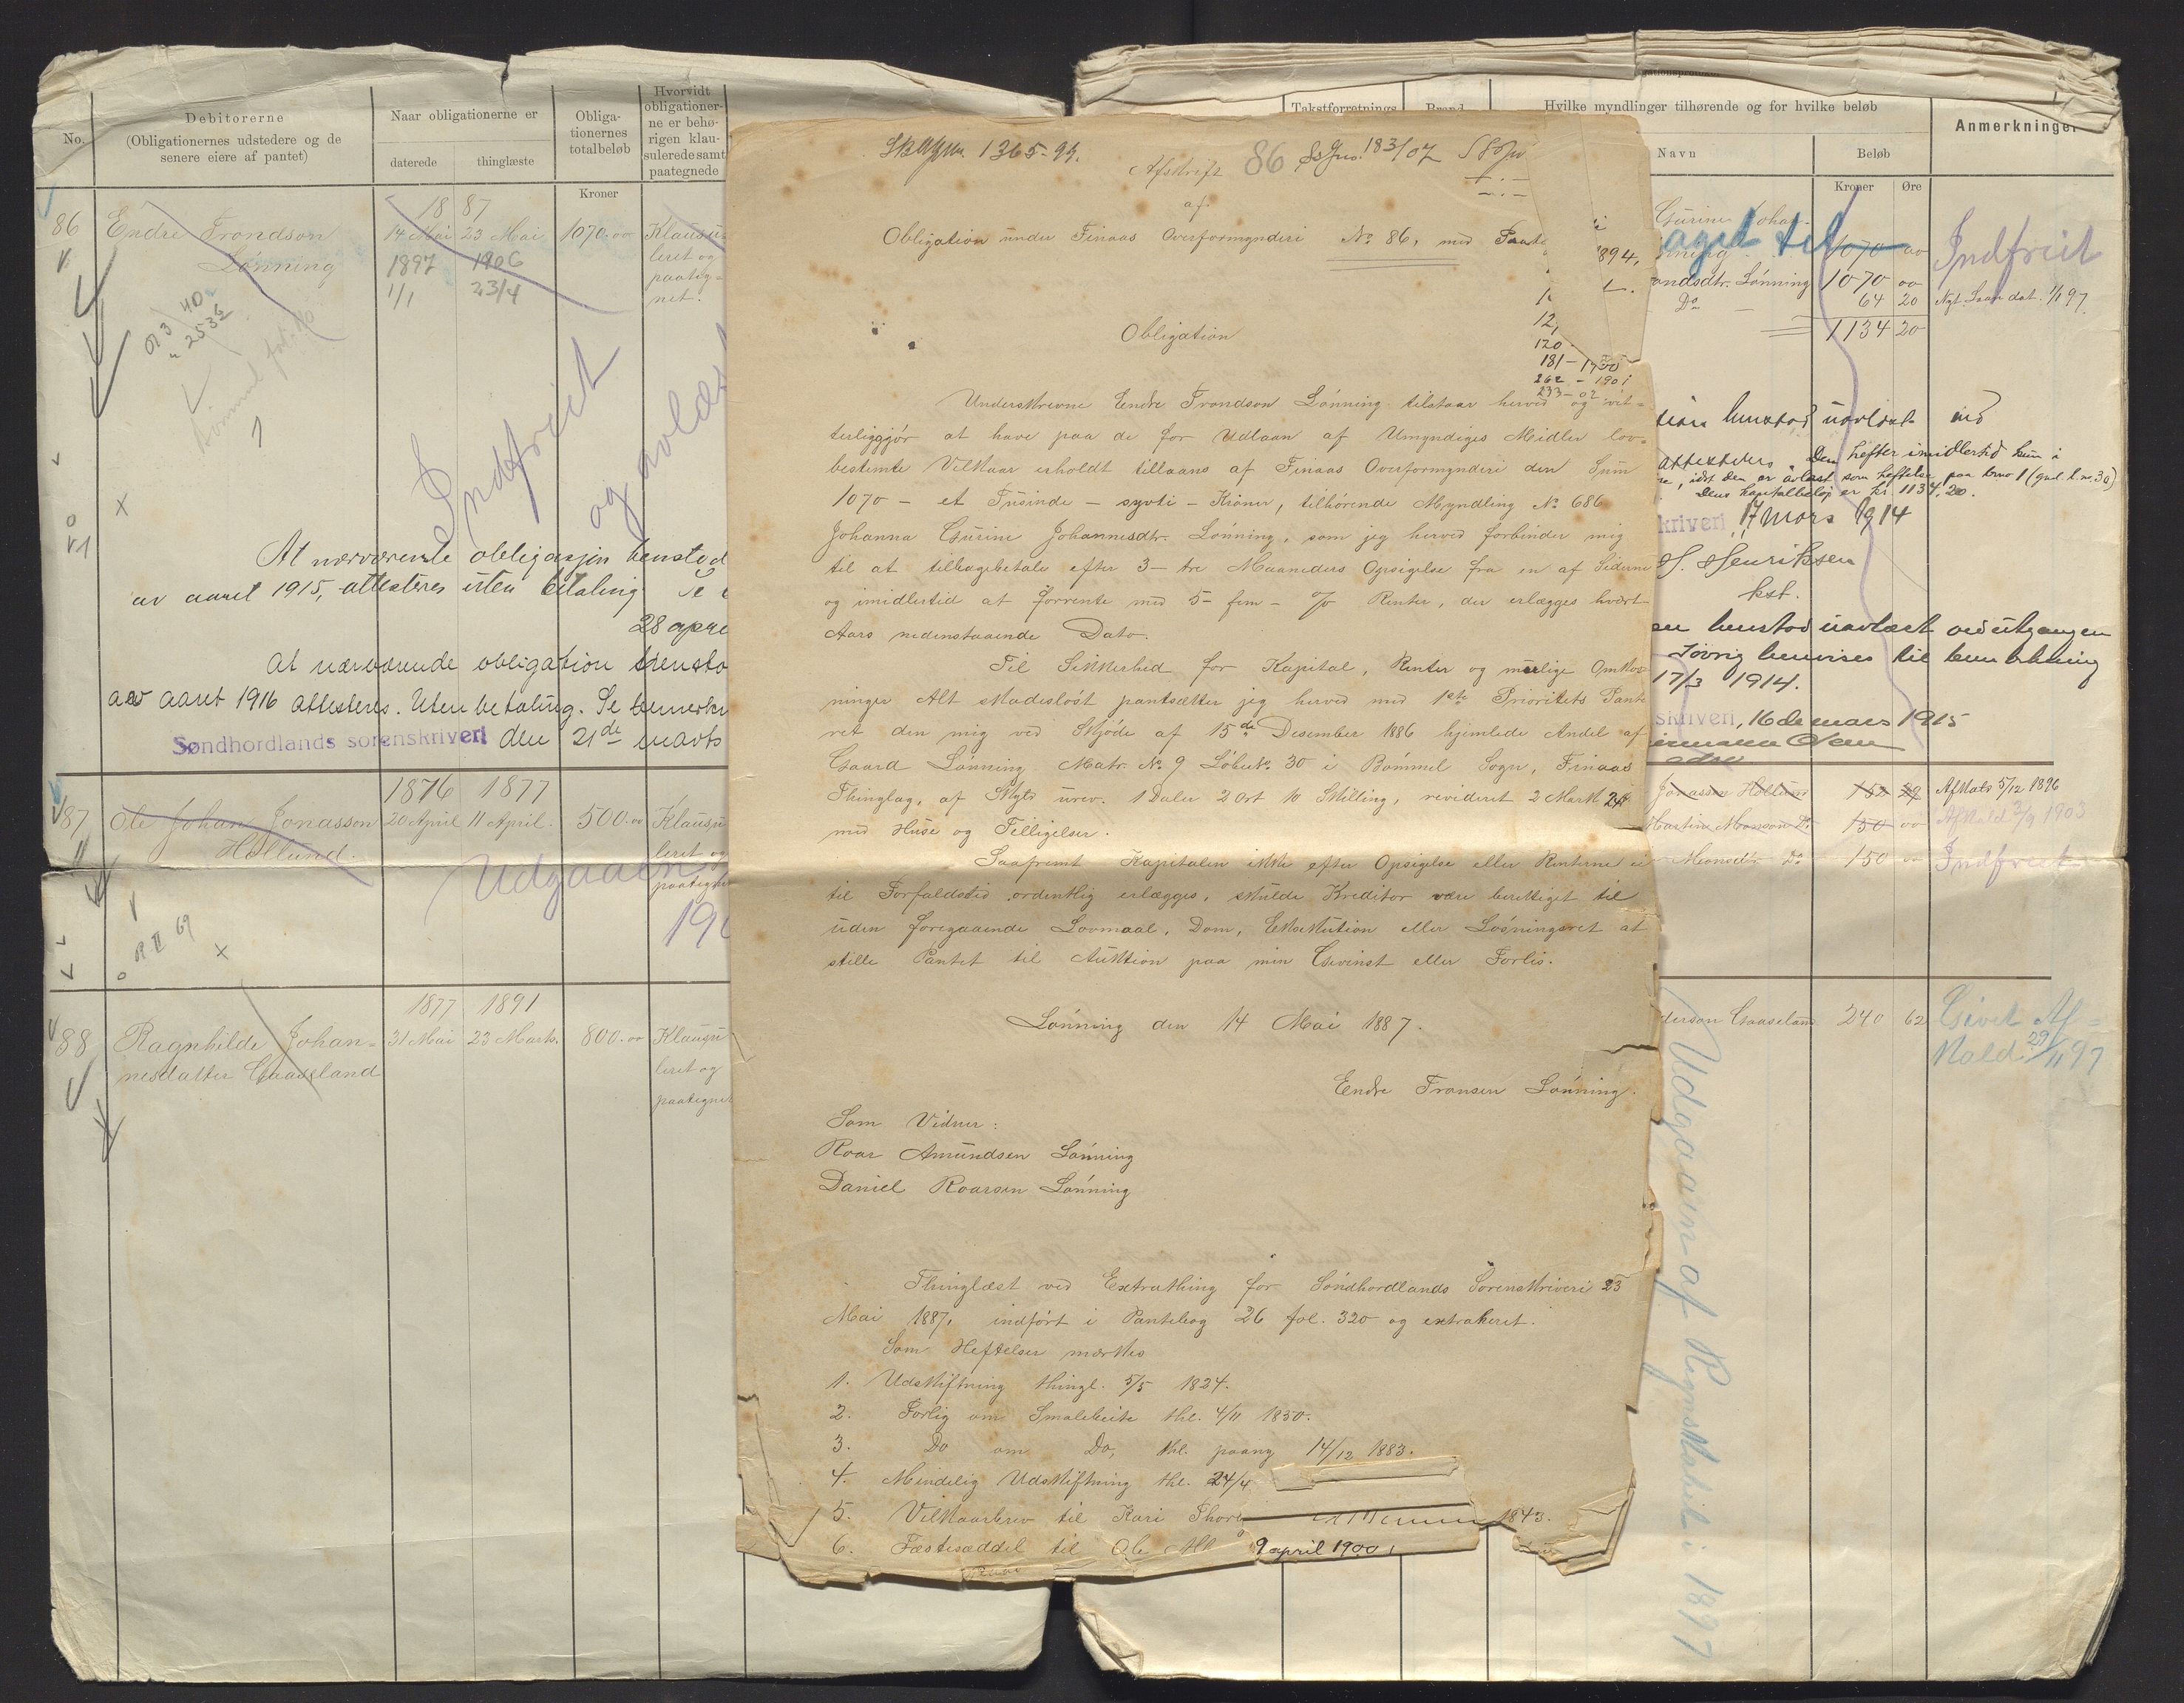 No.
Debitorerne
(Obligationernes udstedere og de
senere eiere af pantet)
Naar obligationerne er
daterede
thinglæste
Obliga-
tionernes
totalbeløb
Hvorvidt
obligationer-
ne er behø-
rigen klau-
sulerede samt
paategnede
Kroner
86
Endre Trondson
Lønning
18 87
14 Mai 23 Mai
1897 1906
1/1 23/4
1070.00
Klausu-
leret og
paateg-
net.
Indfriet
og avlæs
At nærværende obligasjon henstod
av aaret 1915, attesteres uten betaling
28 apr
At nærværende obligation hensto
av aaret 1916 attesteres. Uten betaling. Se bemerkn
Søndhordlands sorenskriveri den 21de marts
87
Ole Johan Jonasson
Hollund.
1876 1877
20 April 11 April.
500.00
Klausu
leret og
paategnet
Udgaaen
190
88
Ragnhilde Johan-
nesdatter Gaaseland
1877 1891
31 Mai 23 Marts.
800.00
Klausu
leret og
paategnet
1365-94.
Afskrift 86 183/07
af
Obligation under Finaas Overformynderi No 86, med
894,
12,
120
181 - 1900
262 - 1901
233 - 02
Obligation
Underskrevne Endre Trondson Lønning tilstaar herved og vit-
terliggjør at have paa de for Udlaan af Umyndiges Midler lov-
bestemte Vilkaar erholdt tillaans af Finaas Overformynderi den Sum
1070 - et Tusinde - syvti - Kroner, tilhørende Myndling No 686
Johanna Gurine Johannesdtr. Lønning, som jeg herved forbinder mig
til at tilbagebetale efter 3 - tre Maaneders Opsigelse fra en af Siderne
og imidlertid at forrente med 5 - fem - % Renter, der erlægges hvert
Aars nedenstaaende Dato.
Til Sikkerhed for Kapital, Renter og mulige Omkos-
ninger Alt skadesløst pantsætter jeg herved med 1ste Prioritets Pante
ret den mig ved Skjøde af 15de Desember 1886 hjemlede Andel af
Gaard Lønning Matr. No 9 Løbeno. 30 i Bømmel Sogn, Finaas
Thinglag, af Skyld urev. 1 Daler 2 Ort 10 Skilling, revideret 2 Mark 24
med Huse og Tilligelser.
Saafremt Kapitalen ikke efter Opsigelse eller Renterne ei
til Forfaldstid ordentlig erlægges, skulde Kreditor være berettiget til
uden foregaaende Lovmaal, Dom, Eksekution eller Løsningsret at
stille Pantet til Auktion paa min Gevinst eller Forlis.
Lønning den 14 Mai 1887.
Endre Tronsen Lønning.
Som Vidner:
Roar Amundsen Lønning
Daniel Roarsen Lønning
Thinglæst ved Extrathing for Søndhordlands Sorenskriveri 23
Mai 1887, indført i Pantebog 26 fol. 320 og extraheret.
Som Heftelser mærkes
1. Udskiftning thingl. 5/5 1824.
2. Forlig om Smalebeite thl. 4/11 1850.
3. Do om Do, thl. paany 14/12 1883.
4. Mindelig Udskiftning thl. 24/4
5. Vilkaarbrev til Kari Thor 1843.
6. Fæstesæddel til Ole
9 april 1900
Takstforretnings
Brand
Hvilke myndlinger tilhørende og for hvilke beløb
Navn
Beløb
Kroner
Øre
Anmerkninger
Gurine Johan-
aget til
1070 00
Indfriet
andsdtr. Lønning 1070 00
Do 64 20
1134 20
henstod uavløst ved
Den hefter imidlertid kun i
idet den er avløst som heftelse paa bruk 1
Dens kapitalbeløp er kr. 1134,20.
skriveri 17 Mars 1914
H. Henriksen
kst.
henstod uavløst ved utgangen
Iøvrig henvises til bemerkning
17/3 1914.
skriveri, 16 de mars 1915
Olsen
Jonassen Hollund
Afkals 5/12 1896
150 00
Afkald 3/9 1903
Do 150
Indfriet
derson Gaaseland 240 62
Givet Af-
kald 29/11 97
Udgaaen af Regnskabet i 1897